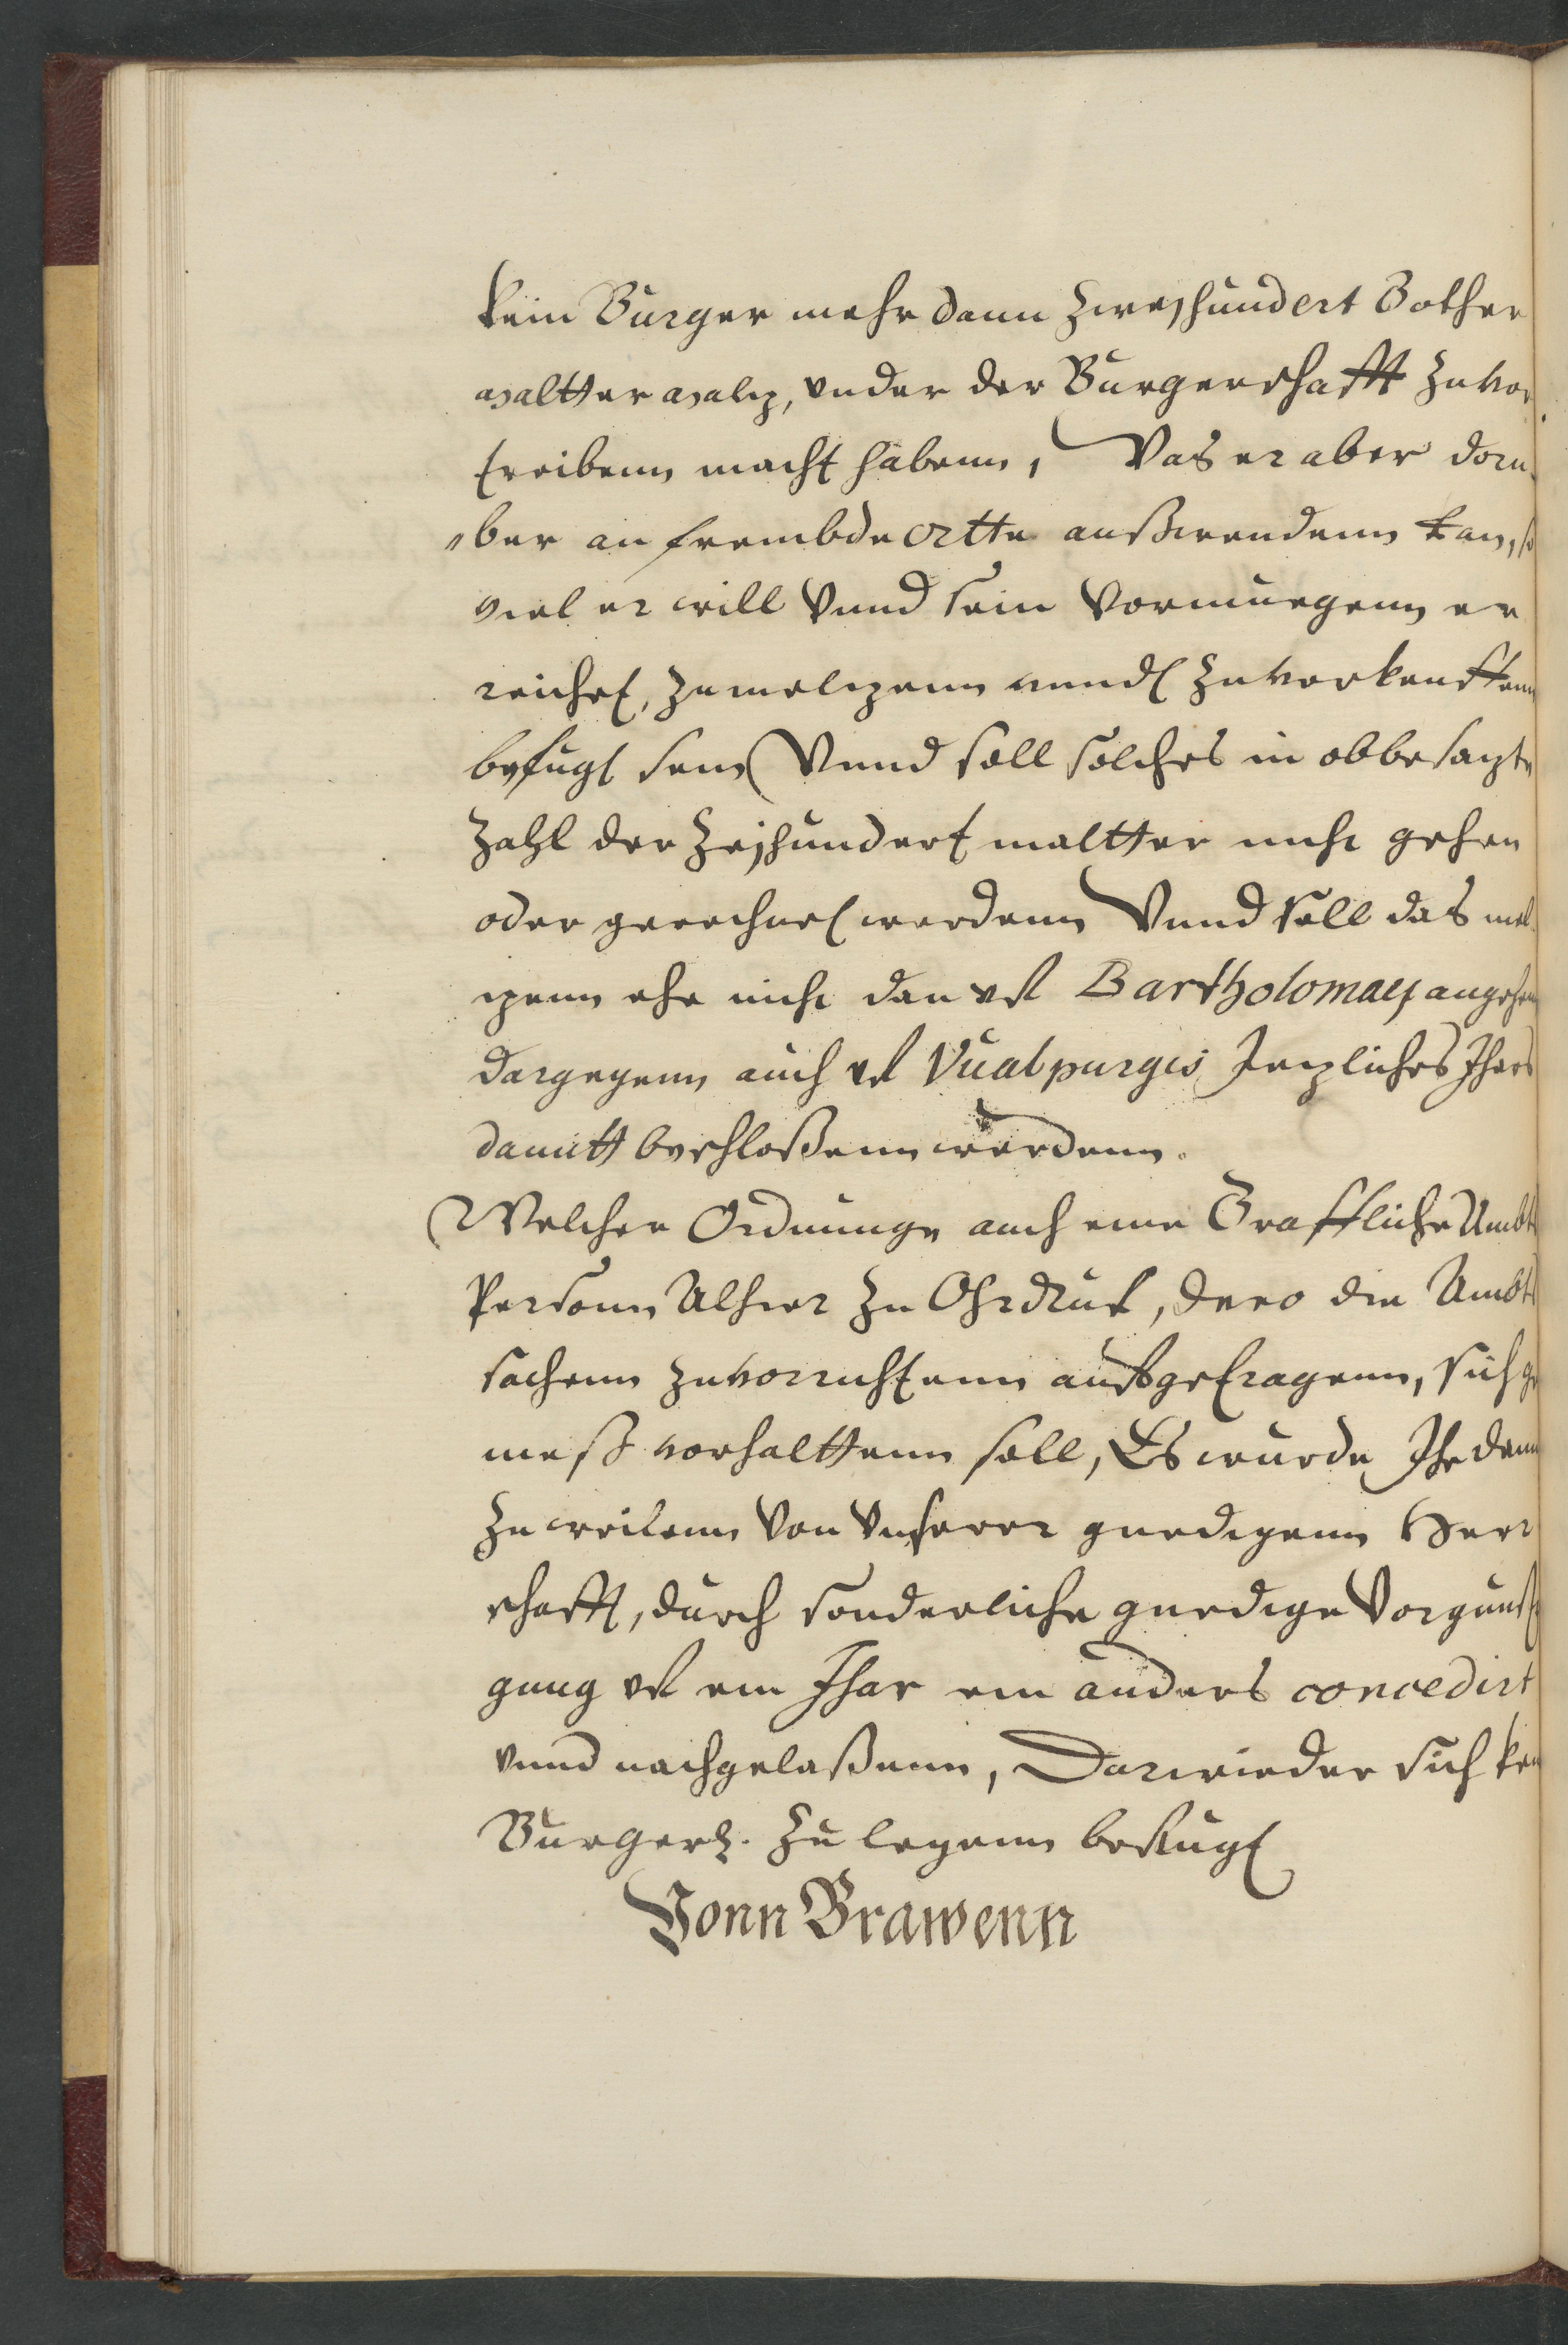 kein Burger mehr dann Zweyhundert Gother
maltter maltz, under der Burgerschafft Zuvor
treibenn macht habenn, Was er aber doru
ber an frembde ortte außwendenn kan, so
viel er will Vnnd sein Vormuegenn er
reichet, Zumeltzenn vnndt Zuvorkeuffenn
befugt sein Vnnd soll solches in obbesagte
Zahl der Zeyhundert maltter nicht gehen
oder gerechnet werdenn Vnnd soll das mel
tzenn ehe nicht dan vf Bartholomaej angehen
dargegenn auch vf Vualpurgis Jerliches Jhars
damitt beschloßenn werdenn.
Welcher Ordnunge auch eine Graffliche Ambts
Personn Alhier Zu Ohrdruf, dero die Ambts
sachenn Zuvorrichtenn auffgetragenn, sich ge
meß vorhalttenn soll, Es wurde Ihr dann
Zu weilenn Von Vnserer gnedigenn Herr
schafft, durch sonderliche gnedige Vorgunst
gung vf ein Jhar ein anders concedirt
vnnd nachgelaßenn, Darwieder sich kein
Burger Zu legenn befugt
Vonn Brawenn